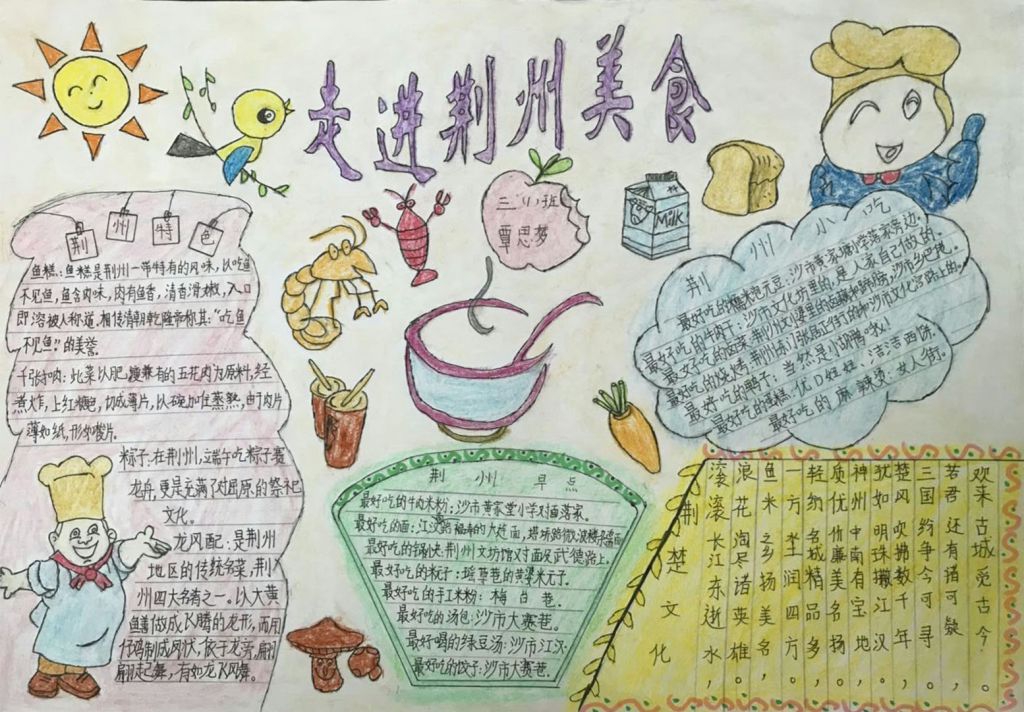 走进荆州美食
三(小)班
覃思梦
Milk
荆州特色
鱼糕:鱼糕是荆州一带特有的风味,以吃鱼
不见鱼,鱼含肉味,肉有鱼香,清香滑嫩,入口
即溶被人称道,相传清朝乾隆帝称其:“吃鱼
不见鱼”的美誉。
千张扣肉:此菜以肥瘦兼有的五花肉为原料,经
煮大炸,上红糖色,切成薄片,以碗加佐蒸熟,由于肉片
薄如纸,形如
片。
粽子:在荆州,端午吃粽子赛
龙舟,更是充满了对屈原的祭祀
文化。
龙凤配:是荆州
地区的传统名菜,荆州
州四大名肴之一。以大黄
鳝做成飞腾的龙形,而用
仔鸡制成凤状,依于龙旁,翩
翩起舞,有如龙飞凤舞。
荆州小吃
最好吃的
元豆:沙市黄家塘小学落家旁边.
最好吃的牛肉干:沙市文化坊里的,是人家自己做的.
最好吃的鸭子:当然是小胡鸭啦!
最好吃的蛋糕:优D娃娃、洁洁西饼.
最好吃的麻辣烫:女人街.
荆州早点
最好吃的牛肉米粉:沙市黄家堂小学对面落家.
最好吃的锅块:荆州文坊馆对面及武德路上.
最好吃的手工米粉:梅台巷.
最好吃的汤包:沙市大赛巷.
最好喝的绿豆汤:沙市江汉
最好吃的饺子:沙市大赛巷.
荆楚文化
欢来古城觅古今。
若君还有诸可疑,
三国纷争今可寻。
楚风吹拂数千年,
犹如明珠撒江汉。
神州中南有宝地,
质优价廉美名扬。
轻纺名城精品多,
一方坐润四方。
鱼米之乡扬美名,
浪花淘尽诸英雄。
滚滚长江东逝水,